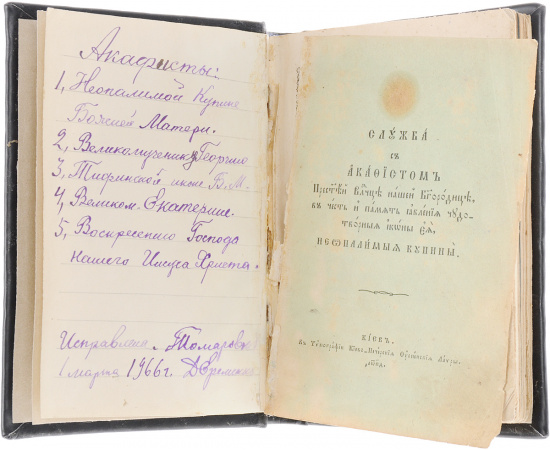 Акафисты:
1, Неопалимой Купине
Божией Матери.
2, Великомученику Георгию
3, Тифинской иконе Б.М.
4, Великом. Екатерине.
5, Воскресению Господа
нашего Иисуса Христа.
Исправлена
1 марта 1966 г.
СЛꙋ́ЖБА
съ
АКАѲІСТОМЪ
Прест҃ѣ́й Влⷣцѣ на́шей Бг҃оро́дицѣ,
въ че́сть и҆ па́мѧть ꙗ҆вле́нїѧ чꙋдо-
тво́рныѧ і҆кѡ́ны є҆ѧ̀,
НЕѠПАЛИ́МЫѦ КꙊПИНЫ̀.
КІЕВЪ.
Въ Тѷпогра́фїи Кїево-Пече́рскїѧ Оу҆спе́нскїѧ Ла́vры.